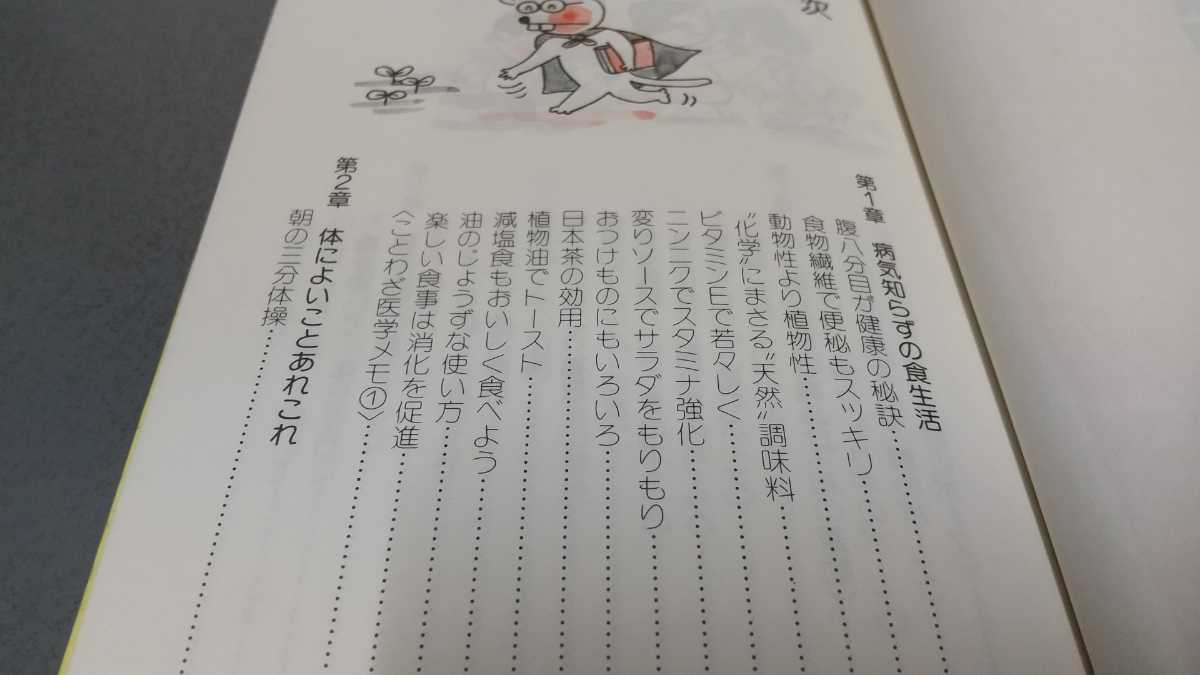 次
第1章 病気知らずの食生活
腹八分目が健康の秘訣
食物繊維で便秘もスッキリ
動物性より植物性
〝化学〟にまさる〝天然〟調味料
ビタミンEで若々しく
ニンニクでスタミナ強化
変りソースでサラダをもりもり
おつけものにもいろいろ
日本茶の効用
植物油でトースト
減塩食もおいしく食べよう
油のじょうずな使い方
楽しい食事は消化を促進
〈ことわざ医学メモ①〉
第2章 体によいことあれこれ
朝の三分体操